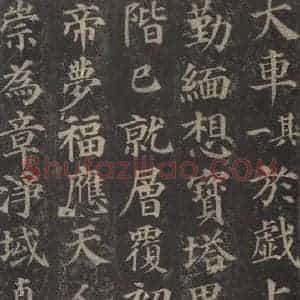 大車其一於戲上
勤緬想寶塔思
階已就層覆初
帝夢福應天人
崇為章淨域真
Shufaziliao.COM